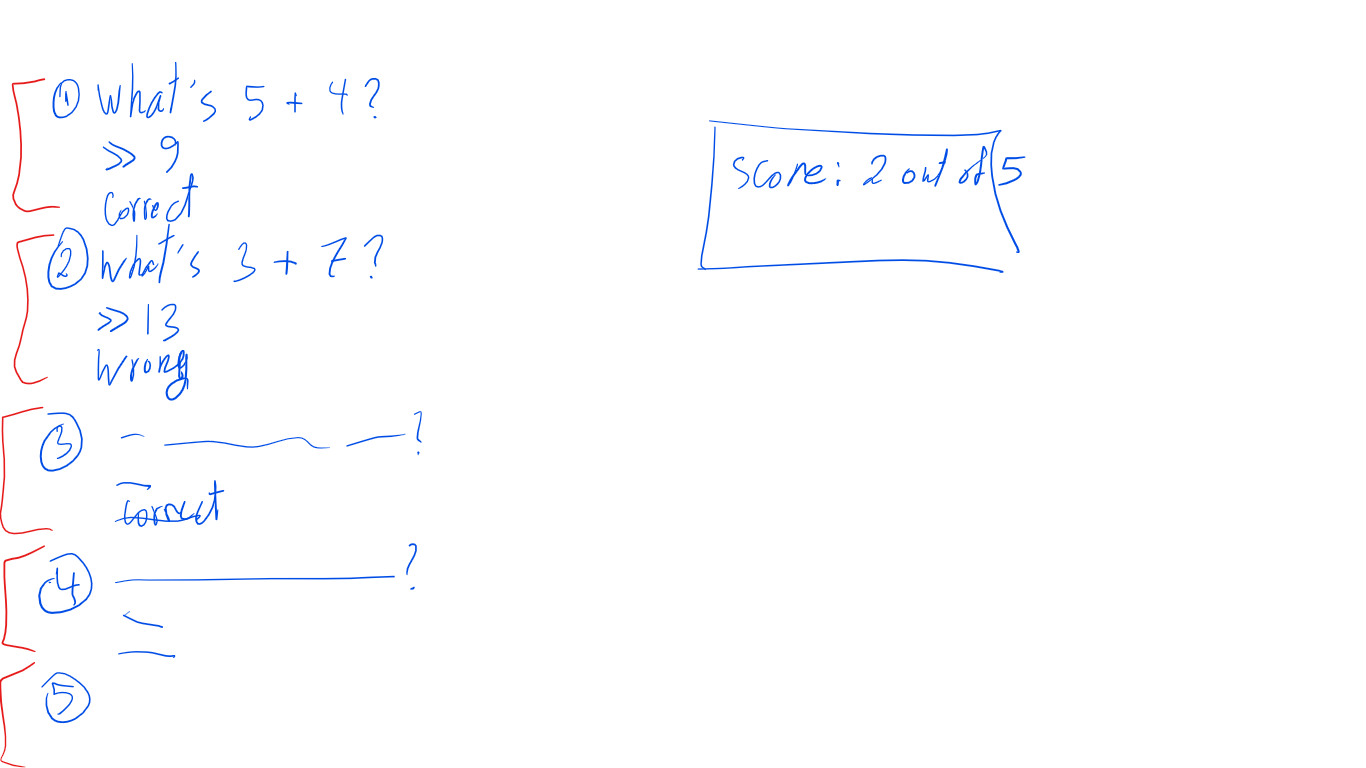 ① What's 5 + 4 ?
>> 9
Correct
② What's 3 + 7 ?
>> 13
Wrong
③ ?
Correct
④ ?
⑤
Score: 2 out of 5